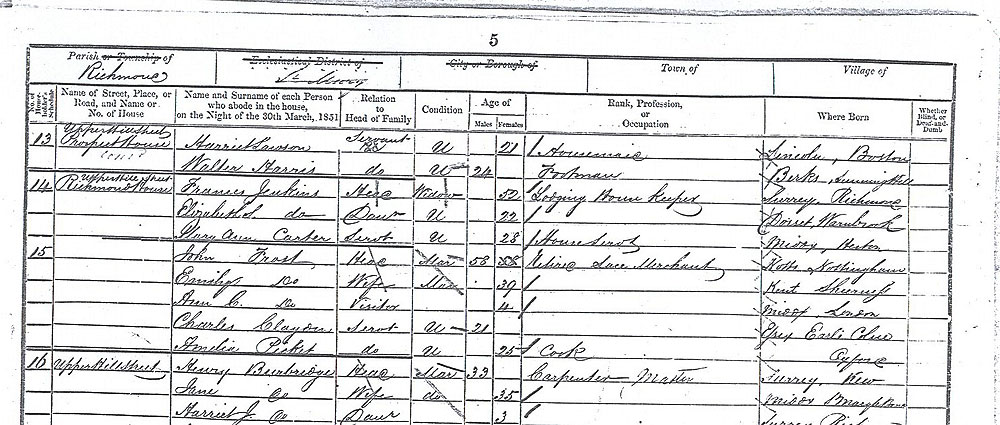 5
Parish or Township of Ecclesiastical District of City or Borough of Town of Village of
Richmond St Mary
No. of House-holder's Schedule Name of Street, Place, or Road, and Name or No. of House Name and Surname of each Person who abode in the house, on the Night of the 30th March, 1851 Relation to Head of Family Condition Age of Males Females Rank, Profession, or Occupation Where Born Whether Blind, or Deaf-and-Dumb
13 Upper Hill Street Prospect House Harriet Lawson Servant U 21 Housemaid Lincoln, Boston
Walter Harris do U 24 Footman Berks, Sunninghill
14 Upper Hill Street Richmond House Frances Jenkins Head Widow 52 Lodging House Keeper Surrey Richmond
Elizabeth S. do Daur U 22 Dorset
Mary Ann Carter Servt U 28 House Servt Middx,
15 John Frost Head Mar 58 58 Retired Lace Merchant Notts Nottingham
Emily do Wife Mar 39 Kent Sheerness
Ann C. Do Visitor 4 Middx, London
Charles Claydon Servt U 21 Essex Earls Colne
Amelia do U 25 Cook Oxford
16 Upper Hill Street Henry Head Mar 33 Carpenter Master Surrey, Kew
Jane Do Wife do 35 Middx
Harriet J. Do Daur 3 Surrey